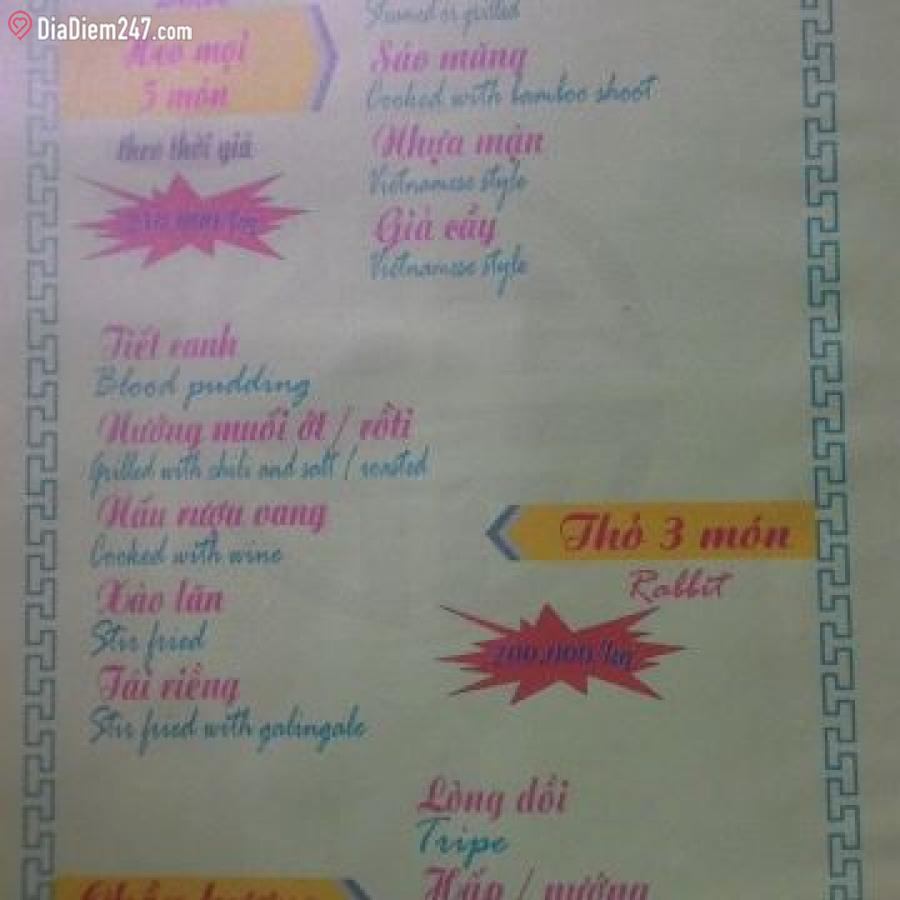 DiaDiem247.com
Heo mọi
5 món
theo thời giá
Steamed or grilled
Sáo măng
Cooked with bamboo shoot
Nhựa mận
Vietnamese style
Giả cầy
Vietnamese style
Tiết canh
Blood pudding
Nướng muối ớt / rôti
Grilled with chili and salt / roasted
Nấu rượu vang
Cooked with wine
Xào lăn
Stir fried
Tái riềng
Stir fried with galingale
Thỏ 3 món
Rabbit
200.000/kg
Lòng dồi
Tripe
Hấp / nướng